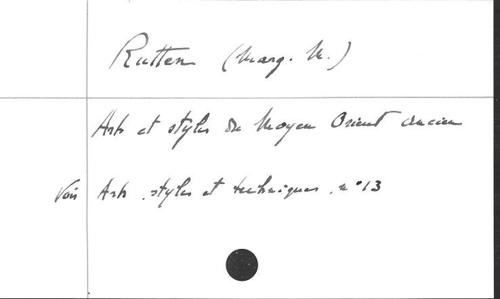 Rutten (Marg. M.)
Arts et styles du Moyen Orient ancien
Voir Arts, styles et techniques, n° 13